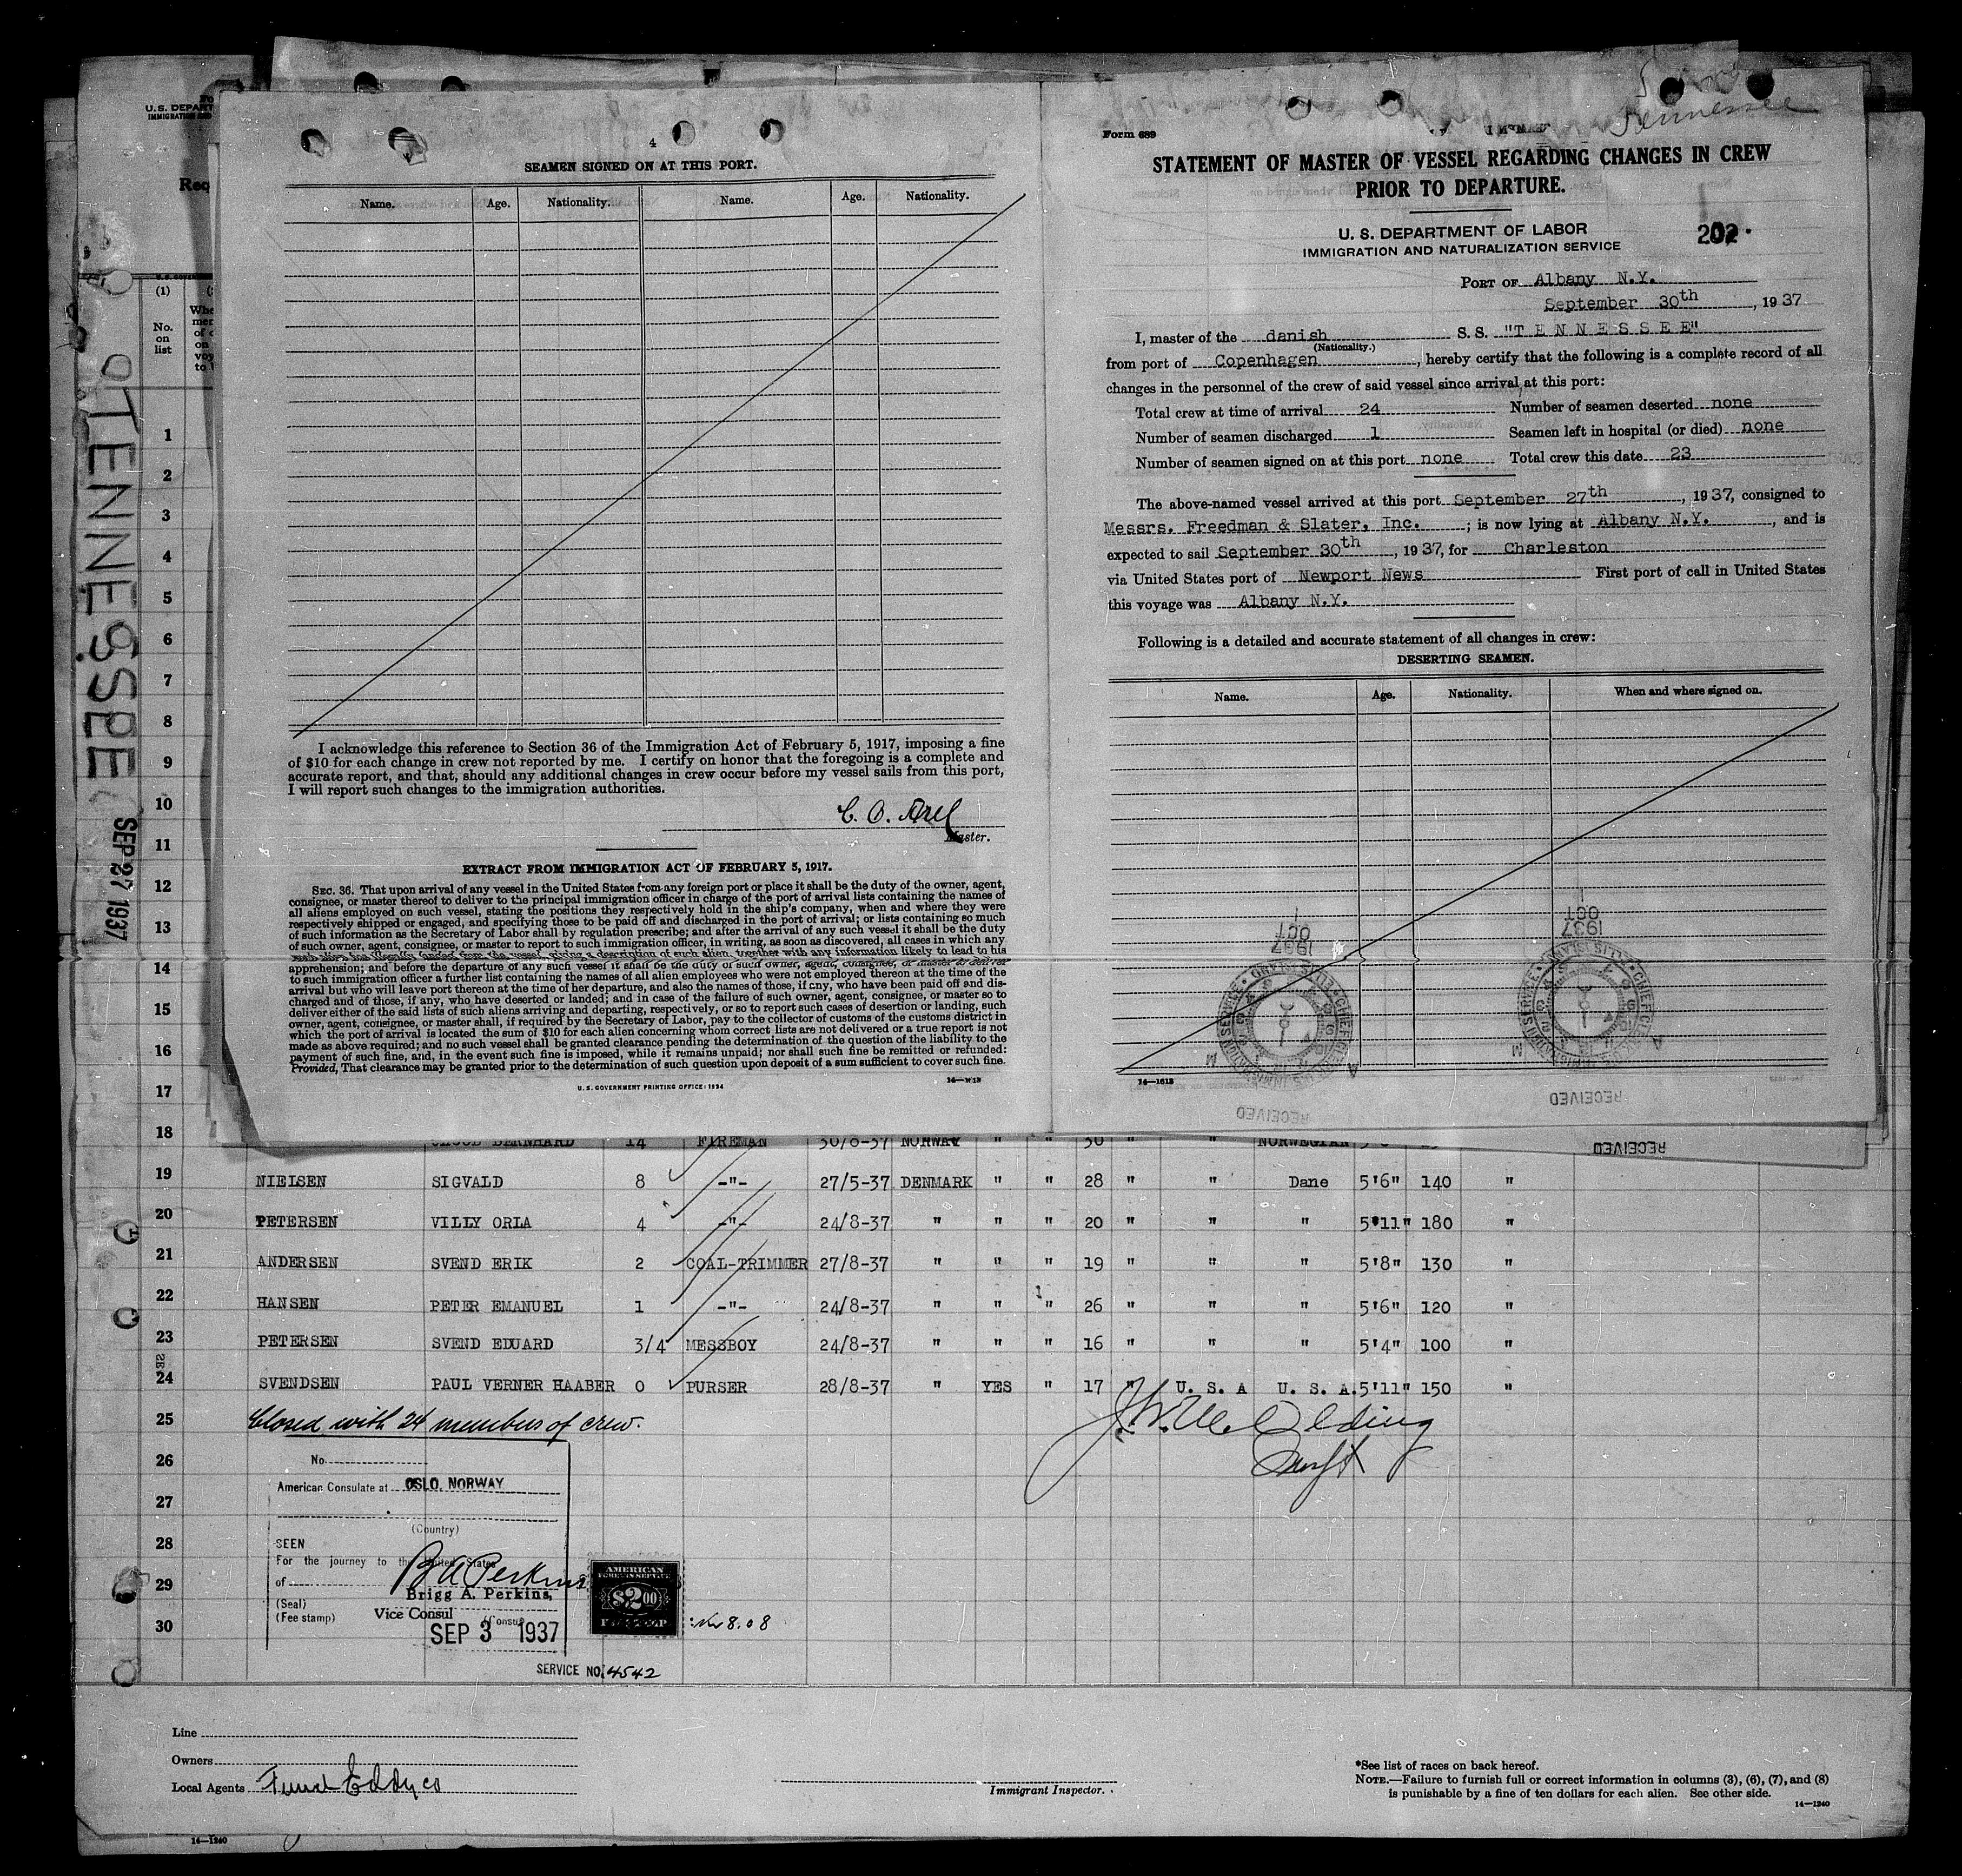 U.S. DEPART
IMMIGRATION AND
Req
(1)
No.
on
list
TENNESSEE
SEP 27 1937
1
2
3
4
5
6
7
8
9
10
11
12
13
14
15
16
17
4
SEAMEN SIGNED ON AT THIS PORT.
Name. Age. Nationality. Name. Age. Nationality.
I acknowledge this reference to Section 36 of the Immigration Act of February 5, 1917, imposing a fine
of $10 for each change in crew not reported by me. I certify on honor that the foregoing is a complete and
accurate report, and that, should any additional changes in crew occur before my vessel sails from this port,
I will report such changes to the immigration authorities.
C. O. Arel
Master.
EXTRACT FROM IMMIGRATION ACT OF FEBRUARY 5, 1917.
SEC. 36. That upon arrival of any vessel in the United States from any foreign port or place it shall be the duty of the owner, agent,
consignee, or master thereof to deliver to the principal immigration officer in charge of the port of arrival lists containing the names of
all aliens employed on such vessel, stating the positions they respectively hold in the ship's company, when and where they were
respectively shipped or engaged, and specifying those to be paid off and discharged in the port of arrival; or lists containing so much
of such information as the Secretary of Labor shall by regulation prescribe; and after the arrival of any such vessel it shall be the duty
of such owner, agent, consignee, or master to report to such immigration officer, in writing, as soon as discovered, all cases in which any
such alien has illegally landed from the vessel, giving a description of such alien, together with any information likely to lead to his
apprehension; and before the departure of any such vessel it shall be the duty of such owner, agent, consignee, or master to deliver
to such immigration officer a further list containing the names of all alien employees who were not employed thereon at the time of the
arrival but who will leave port thereon at the time of her departure, and also the names of those, if any, who have been paid off and dis-
charged and of those, if any, who have deserted or landed; and in case of the failure of such owner, agent, consignee, or master so to
deliver either of the said lists of such aliens arriving and departing, respectively, or so to report such cases of desertion or landing, such
owner, agent, consignee, or master shall, if required by the Secretary of Labor, pay to the collector of customs of the customs district in
which the port of arrival is located the sum of $10 for each alien concerning whom correct lists are not delivered or a true report is not
made as above required; and no such vessel shall be granted clearance pending the determination of the question of the liability to the
payment of such fine, and, in the event such fine is imposed, while it remains unpaid; nor shall such fine be remitted or refunded:
Provided, That clearance may be granted prior to the determination of such question upon deposit of a sum sufficient to cover such fine.
U.S. GOVERNMENT PRINTING OFFICE: 1934
Tennessee
Form 689
STATEMENT OF MASTER OF VESSEL REGARDING CHANGES IN CREW
PRIOR TO DEPARTURE.
U. S. DEPARTMENT OF LABOR
IMMIGRATION AND NATURALIZATION SERVICE
202
PORT OF Albany N.Y.
September 30th, 1937
I, master of the danish S. S. "TENNESSEE"
(Nationality.)
from port of Copenhagen, hereby certify that the following is a complete record of all
changes in the personnel of the crew of said vessel since arrival at this port:
Total crew at time of arrival 24 Number of seamen deserted none
Number of seamen discharged 1 Seamen left in hospital (or died) none
Number of seamen signed on at this port none Total crew this date 23
The above-named vessel arrived at this port September 27th, 1937, consigned to
Messrs. Freedman & Slater, Inc.; is now lying at Albany N.Y., and is
expected to sail September 30th, 1937, for Charleston
via United States port of Newport News First port of call in United States
this voyage was Albany N.Y.
Following is a detailed and accurate statement of all changes in crew:
DESERTING SEAMEN.
Name. Age. Nationality. When and where signed on.
1937
OCT
1
1937
OCT
1
RECEIVED
RECEIVED
RECEIVED
14—1613
18 BERNHARD 14 FIREMAN 30/8-37 NORWAY " " 30 " " NORWEGIAN
19 NIELSEN SIGVALD 8 -"- 27/5-37 DENMARK " " 28 " " Dane 5'6" 140 "
20 PETERSEN VILLY ORLA 4 -"- 24/8-37 " " " 20 " " " 5'11" 180 "
21 ANDERSEN SVEND ERIK 2 COAL-TRIMMER 27/8-37 " " " 19 " " " 5'8" 130 "
22 HANSEN PETER EMANUEL 1 -"- 24/8-37 " " " 26 " " " 5'6" 120 "
23 PETERSEN SVEND EDUARD 3/4 MESSBOY 24/8-37 " " " 16 " " " 5'4" 100 "
24 SVENDSEN PAUL VERNER HAABER 0 PURSER 28/8-37 " YES " 17 " U. S. A U. S. A. 5'11" 150 "
25 Closed with 24 members of crew.
26 No.
American Consulate at OSLO, NORWAY
27
(Country)
28 SEEN
For the journey to the United States
29 of
Brigg A. Perkins,
(Seal)
(Fee stamp) Vice Consul
30 SEP 3 1937
AMERICAN
FOREIGN SERVICE
$2.00
SERVICE NO. 4542
Line
Owners
Local Agents Funch Eddy co
Immigrant Inspector.
*See list of races on back hereof.
NOTE.—Failure to furnish full or correct information in columns (3), (6), (7), and (8)
is punishable by a fine of ten dollars for each alien. See other side.
14—1240
14—1240